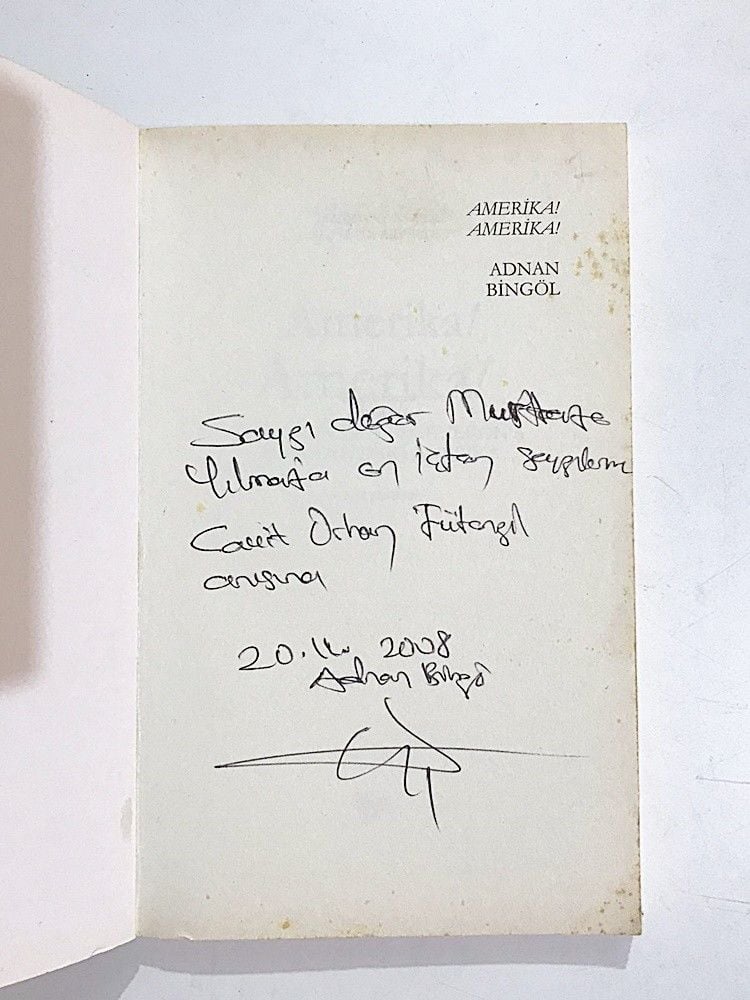 AMERİKA!
AMERİKA!
ADNAN
BİNGÖL
Saygı değer Mustafa
Yılmaz'a en içten saygılarımla
Cavit Orhan Tütengil
anısına
20. 2008
Adnan Bingöl